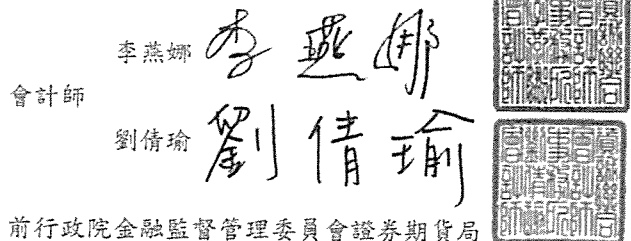 李燕娜 李燕娜
會計師
劉倩瑜 劉倩瑜
前行政院金融監督管理委員會證券期貨局